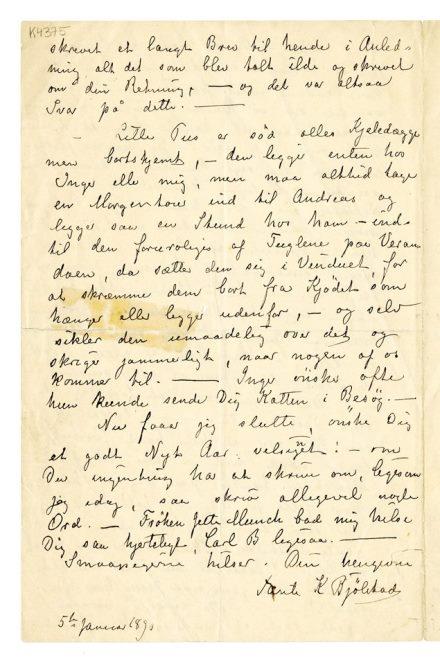 K4375
skrevet et langt Brev til hende i Anled-
ning alt det som blev talt ilde og skrevet
om din Retning, — og det var altsaa
Svar på dette. —
— Lille Pus er sød alles Kjæledægge
men bortskjæmt, — den ligger enten hos
Inger eller mig, men maa altid tage
en Morgentour ind til Andreas og
ligger saa en Stund hos ham — ind-
til den foruroliges af Fuglene paa Veran
daen, da sætter den sig i Vinduet, for
at skræmme dem bort fra Kjödet som
hænger eller ligger udenfor, — og selv
sikler den umaadelig over det og
skriger jammerligt, naar nogen af os
kommer til. — Inger ønsker ofte
hun kunde sende Dig Katten i Besøg. —
Nu faar jeg slutte, ønske Dig
et godt Nytt Aar velsignet! — om
Du ingenting har at skrive om, ligesom
jeg idag, saa skriv allegevel nogle
Ord. — Frøken Jette Munch bad mig hilse
Dig saa hjerteligt, Carl B ligesaa. —
Smaapigerne hilser. Din hengivne
Tante K Bjölstad
5te Januar 189